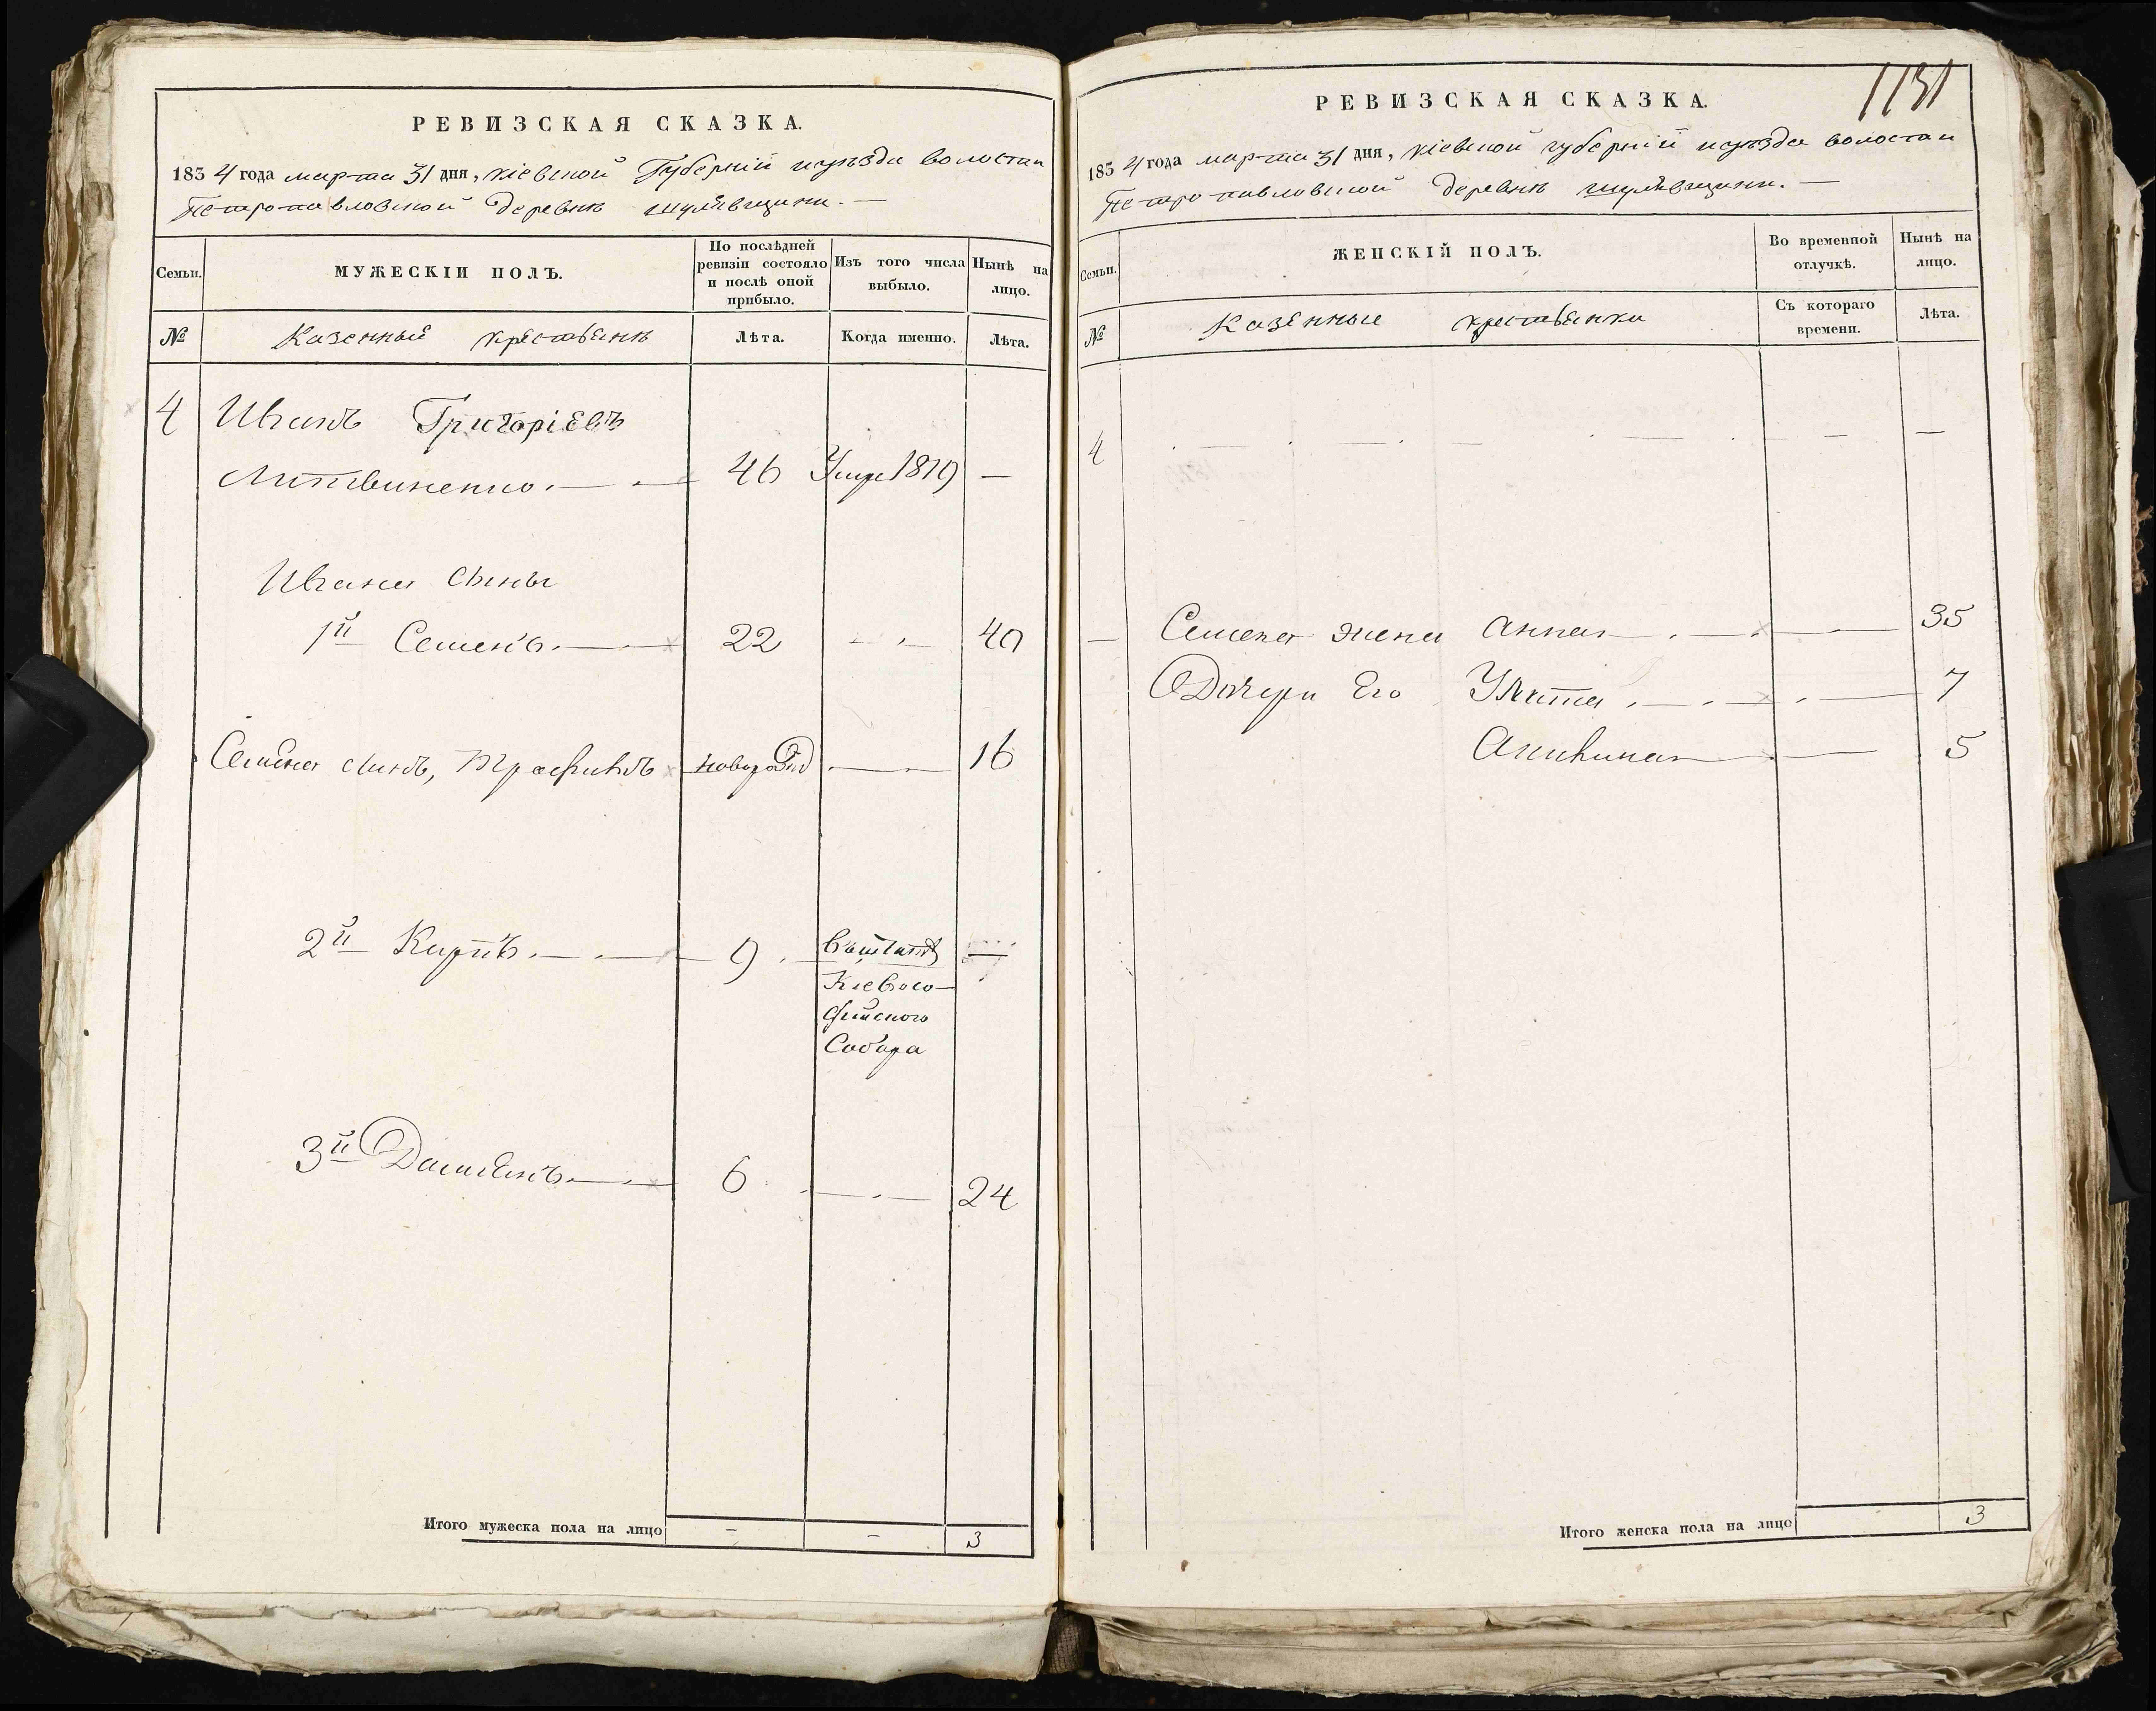 РЕВИЗСКАЯ СКАЗКА.
1834 года марта 31 дня, Кіевской Губерніи и уѣзда волости
Петропавловской деревнѣ Шулявщини. —
Семьи.
МУЖЕСКІЙ ПОЛЪ.
По послѣдней ревизіи состояло и послѣ оной прибыло.
Изъ того числа выбыло.
Нынѣ на лицо.
№
Казенныи крестьяне
Лѣта.
Когда именно.
Лѣта.
4 Иванъ Григоріевъ
Литвиненко. — 46 Умре 1819 —
Ивана сыны
1й Семенъ. — 22 — 40
Семена сынъ, Трофимъ новорожд — 16
2й Карпъ. — 9 —
Кіевосо-
фійского
Собора
3й Даміенъ. — 6 — 24
Итого мужеска пола на лицо - - 3
1131
РЕВИЗСКАЯ СКАЗКА.
1834 года марта 31 дня, Кіевской губерніи и уѣзда волости
Петропавловской деревнѣ Шулявщини. —
Семьи.
ЖЕНСКІЙ ПОЛЪ.
Во временной отлучкѣ.
Нынѣ на лицо.
№
Казенные крестьянки
Съ котораго времени.
Лѣта.
4 — — —
— Семена жена Анна — 35
Дочери Его Улита — 7
Акилина — 5
Итого женска пола на лицо 3